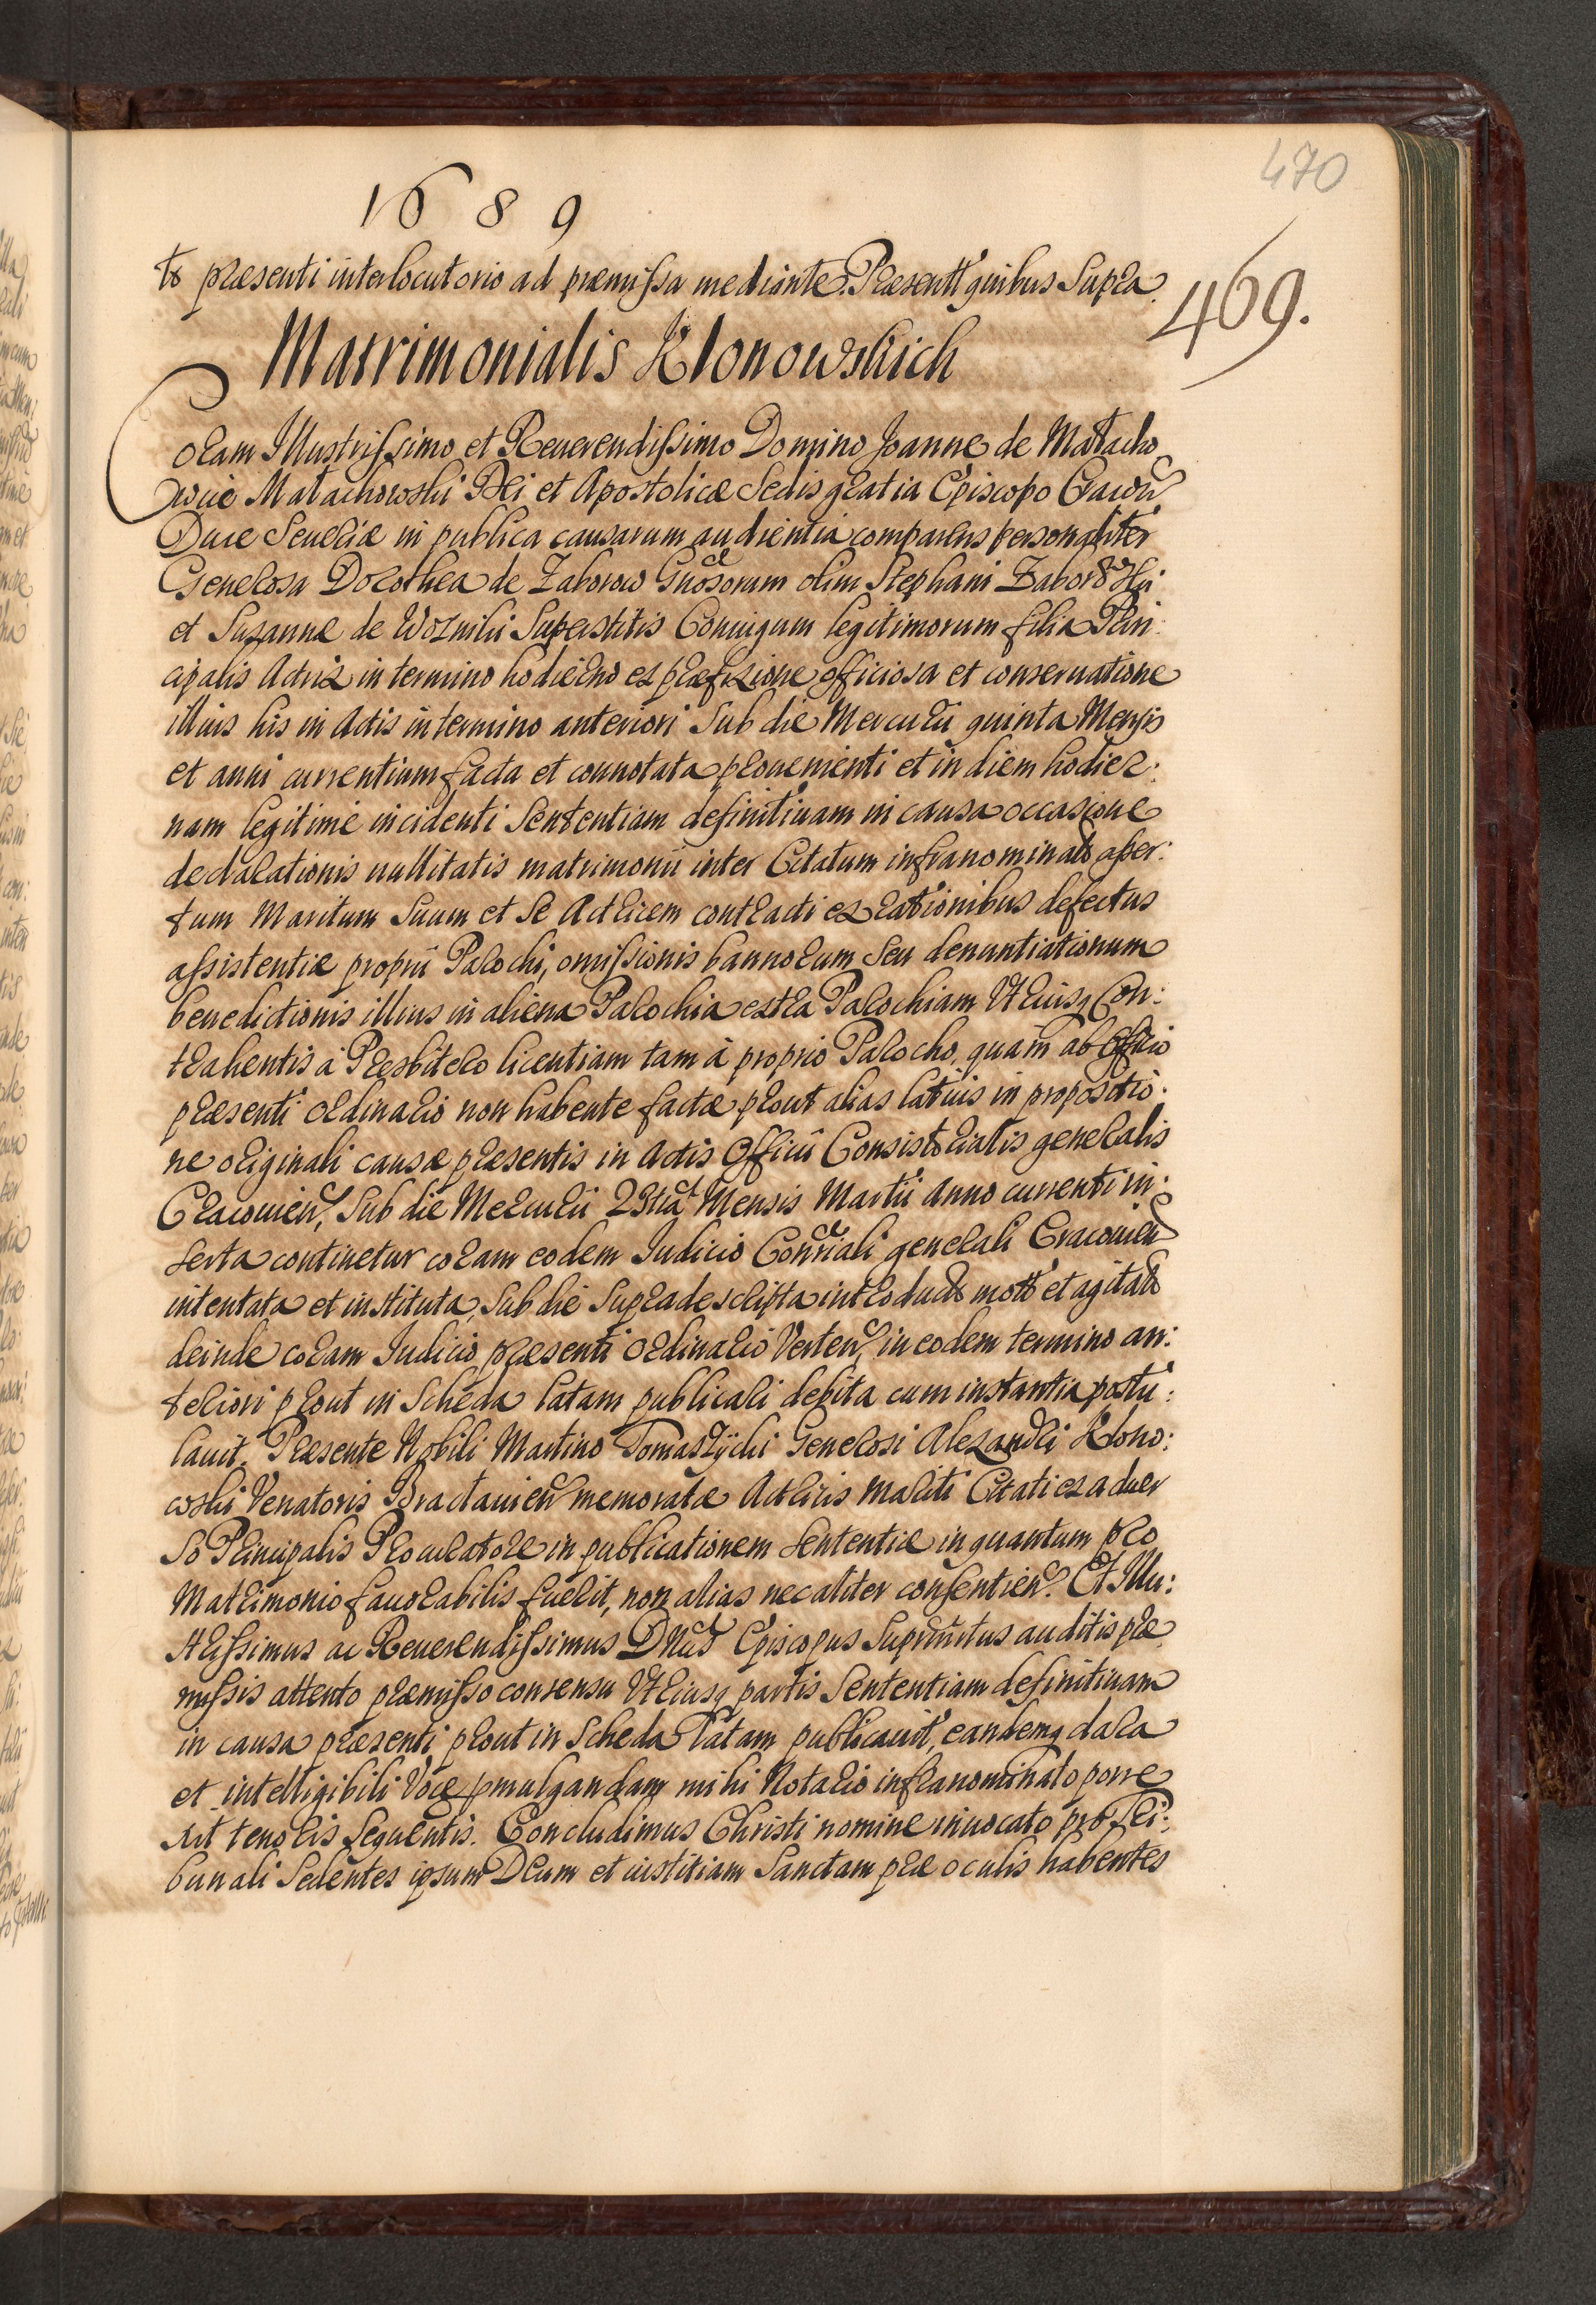 470
1689
to præsenti interlocutorio ad præmissa mediante. Præsentt quibus Supra.
469.
Matrimonialis Klonowskich
Coram Illustrissimo et Reuerendissimo Domino Joanne de Małacho
wice Małachowski Dei et Apostolicæ Sedis gratia Episcopo Cracou
Duce Seueriæ in publica causarum audientia comparens personaliter
Generosa Dorothea de Zaborow Gnosorum olim Stephani Zaborowski
et Suzannæ de Woźniki Superstitis Coniugum legitimorum filia Prin:
cipalis Actrix in termino hodierno ex præfixione officiosa et conseruatione
illius his in Actis in termino anteriori Sub die Mercurii quinta Mensis
et anni currentium facta et connotata proueniente et in diem hodier:
nam legitime incidenti Sententiam definitiuam in causa occasione
declarationis nullitatis matrimonii inter Citatum infranominato asser:
tum Maritum Suum et Se Actricem contracti ex rationibus defectus
assistentiæ proprii Parochi, omissionis bannorum Seu denuntiationum
benedictionis illius in aliena Parochia extra Parochiam Utriusq Con:
trahentis à Presbitero licentiam tam à proprio Parocho, quam ab Officio
præsenti ordinario non habente factæ prout alias latius in propositio:
ne originali causæ præsentis in Actis Officii Consistorialis generalis
Cracouien, Sub die Mercurii 23tia Mensis Martii Anno currenti in:
serta continetur coram eodem Iudicio Consriali generali Cracouien
intentata et instituta, Sub die Supradescripta introducto motto et agitato
deinde coram Iudicio præsenti ordinario Verten, in eodem termino an:
teriori prout in Scheda latam publicari debita cum instantia postu:
lauit. Præsente Nobili Martino Tomaszycki Generosi Alexandri Klono:
wski Venatoris Bractauien memoratæ Actricis Mariti Citati ex aduer
so Principalis Procuratore in publicationem Sententiæ in quantum pro
Matrimonio fauorabilis fuerit, non alias nec aliter consentien. Et Illu:
strissimus ac Reuerendissimus Dnus Episcopus Suprinitus auditis præ
missis attento præmisso consensu Utriusq partis Sententiam definitiuam
in causa præsenti prout in Scheda latam publicauit, eandemq clara
et intelligibili Voce pmulgandam mihi Notario infranominato porre
xit tenoris Sequentis. Concludimus Christi nomine inuocato pro Tri:
bunali Sedentes ipsum Deum et iustitiam Sanctam præ oculis habentes